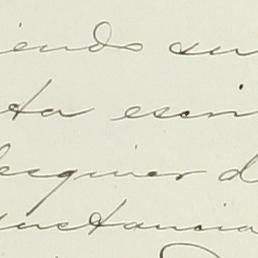 iendo su
ta escri
esquier d
unstancia